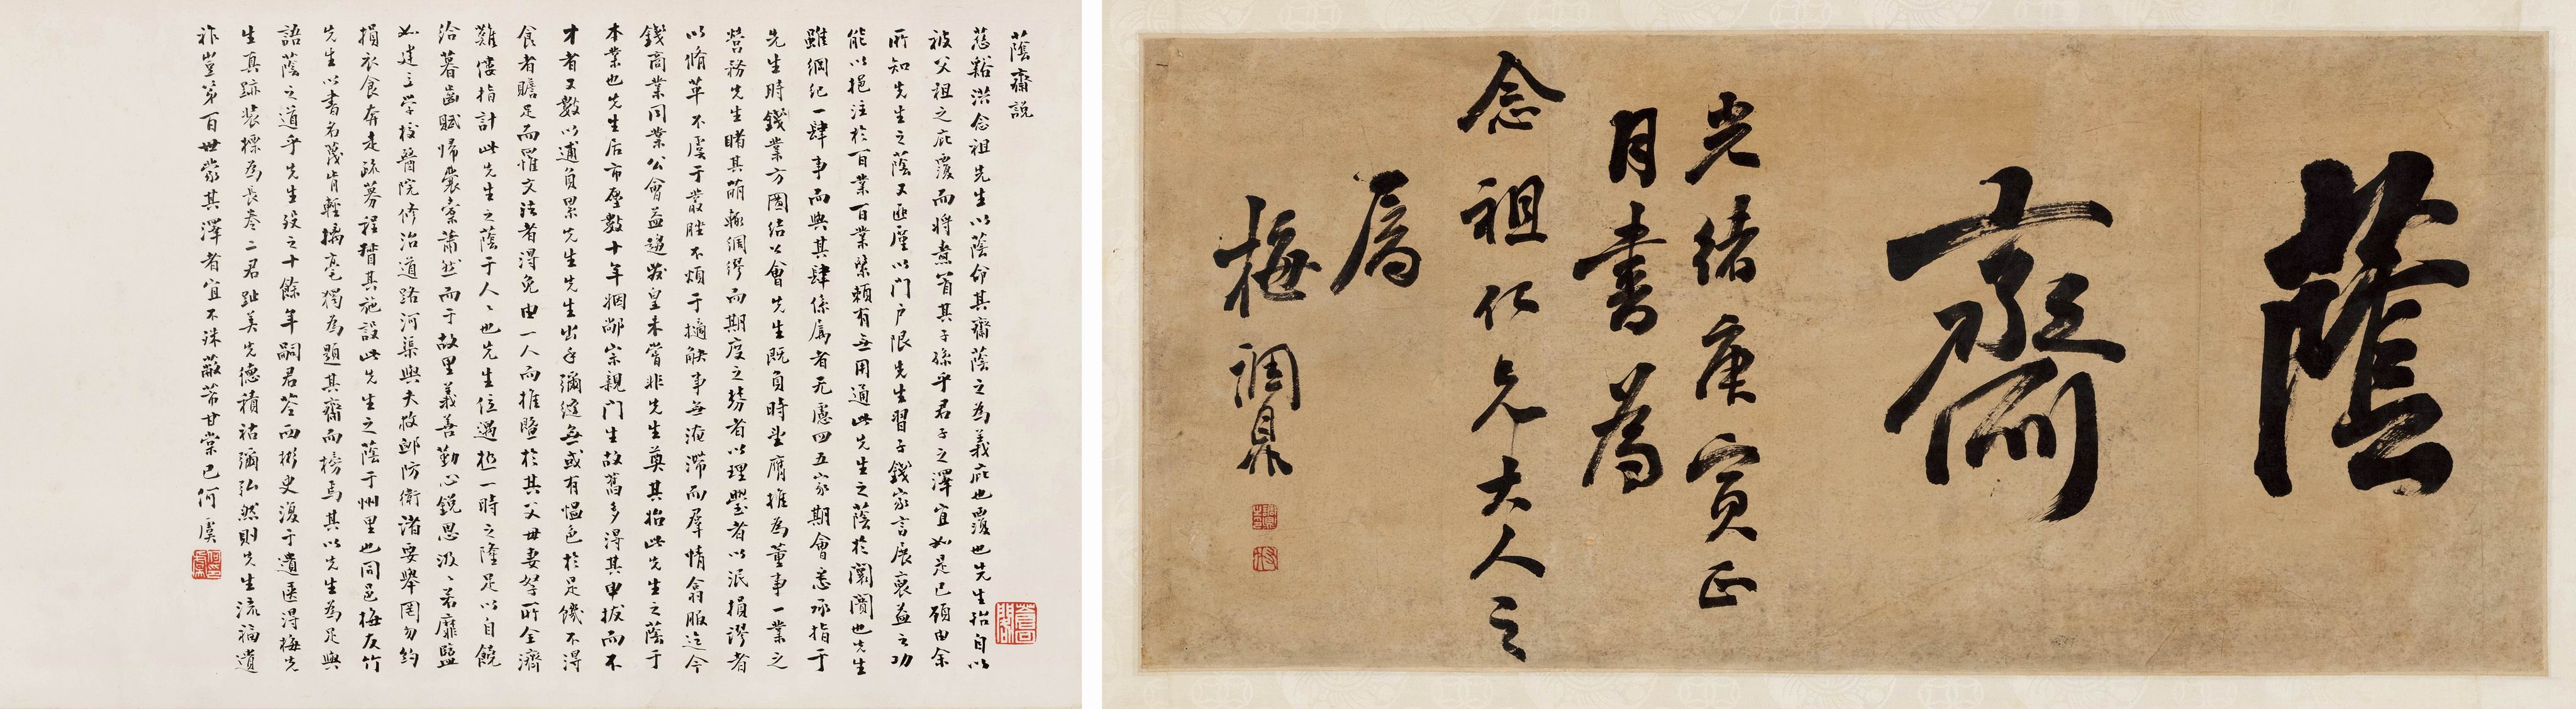 蔭齋
光緒庚寅正
月書為
念祖仁兄大人之
屬
梅調鼎
蔭齋說
慈谿洪念祖先生以蔭命其齋蔭之為義庇也覆也先生殆自以
被父祖之庇覆而將煮習其子孫乎君子之澤宜如是已顧由余
所知先生之蔭又匪廑以門戶限先生習子錢家言展裒益之功
能以挹注於百業百業緊賴有無用通此先生之蔭於闤闠也先生
雖綱紀一肆事而與其肆係屬者无慮四五家期會悉承指于
先生時錢業方團結以會先生既負時望膺推為董事一業之
營務先生睹其萌輒綢繆而期度之棼者以理舋者以泯損謬者
以脩革不虞于叢脞不煩于擿觖事無淹滯而羣情翕服迄今
錢商業同業公會益趨發皇未嘗非先生奠其始此先生之蔭于
本業也先生居市廛數十年烟鄰宗親門生故舊多得其申拔而不
才者又數以逋負累先生先生出手彌縫無或有慍色於是饑不得
食者贍足而罹文法者得免由一人而推暨於其父母妻孥所全濟
難僂指計此先生之蔭于人人也先生位遇極一時之隆足以自饒
洽暮齒賦歸囊橐蕭然而于故里義善勤心銳思汲汲若靡盬
如建立學校醫院修治道路河渠與夫救卹防衛諸要舉罔勿約
損衣食奔走疏募程督其施設此先生之蔭于州里也同邑梅友竹
先生以書名蔑肯輕摛毫獨為題其齋而榜焉其以先生為足與
語蔭之道乎先生歿之十餘年嗣君荃西彬史濅于遺匧得梅先
生真跡裝標為長卷二君趾美先德積祜彌弘然則先生流福遺
祚豈第百世蒙其澤者宜不誅蔽芾甘棠已何虞